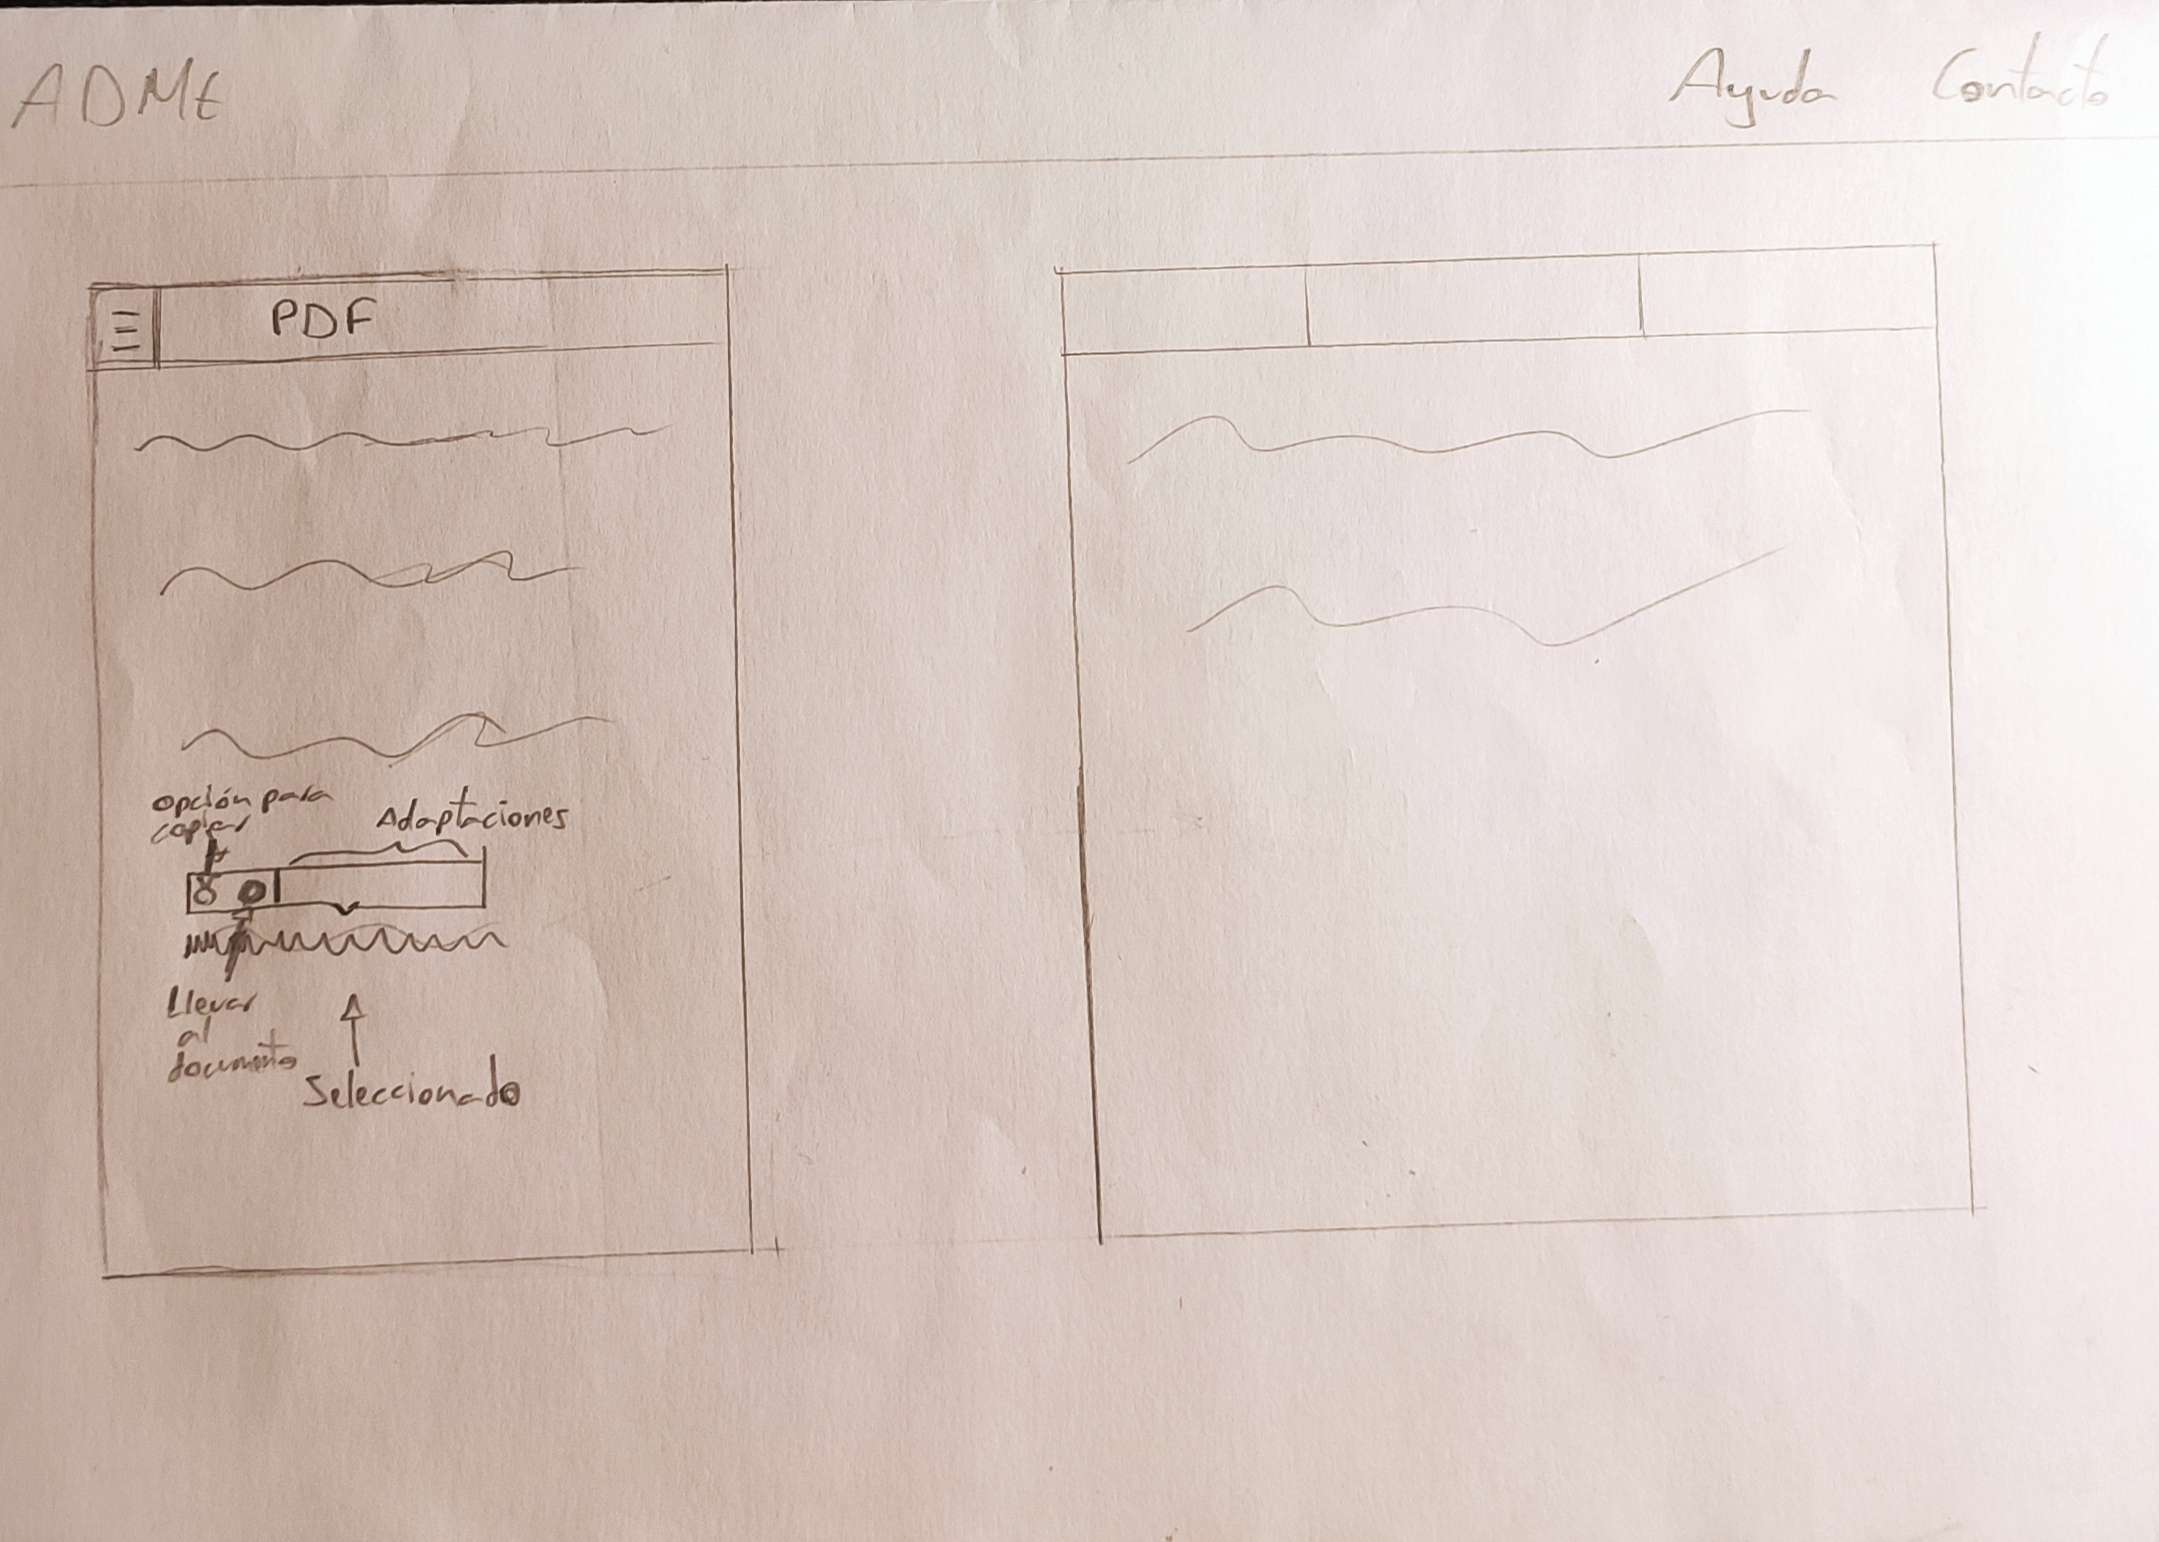 ADME
Ayuda Contacto
PDF
opción para
copiar
Adaptaciones
Llevar
al
documento
Seleccionado